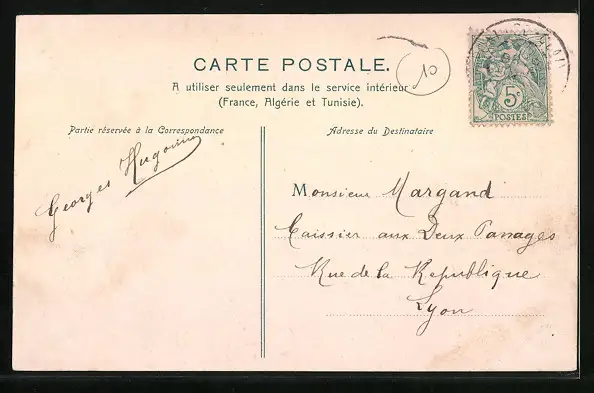 CARTE POSTALE.
A utiliser seulement dans le service intérieur
(France, Algérie et Tunisie).
10
5c
POSTES
Partie réservée à la Correspondance
Adresse du Destinataire
Georges
Monsieur Margand
Caissier aux Deux Passages
Rue de la République
Lyon